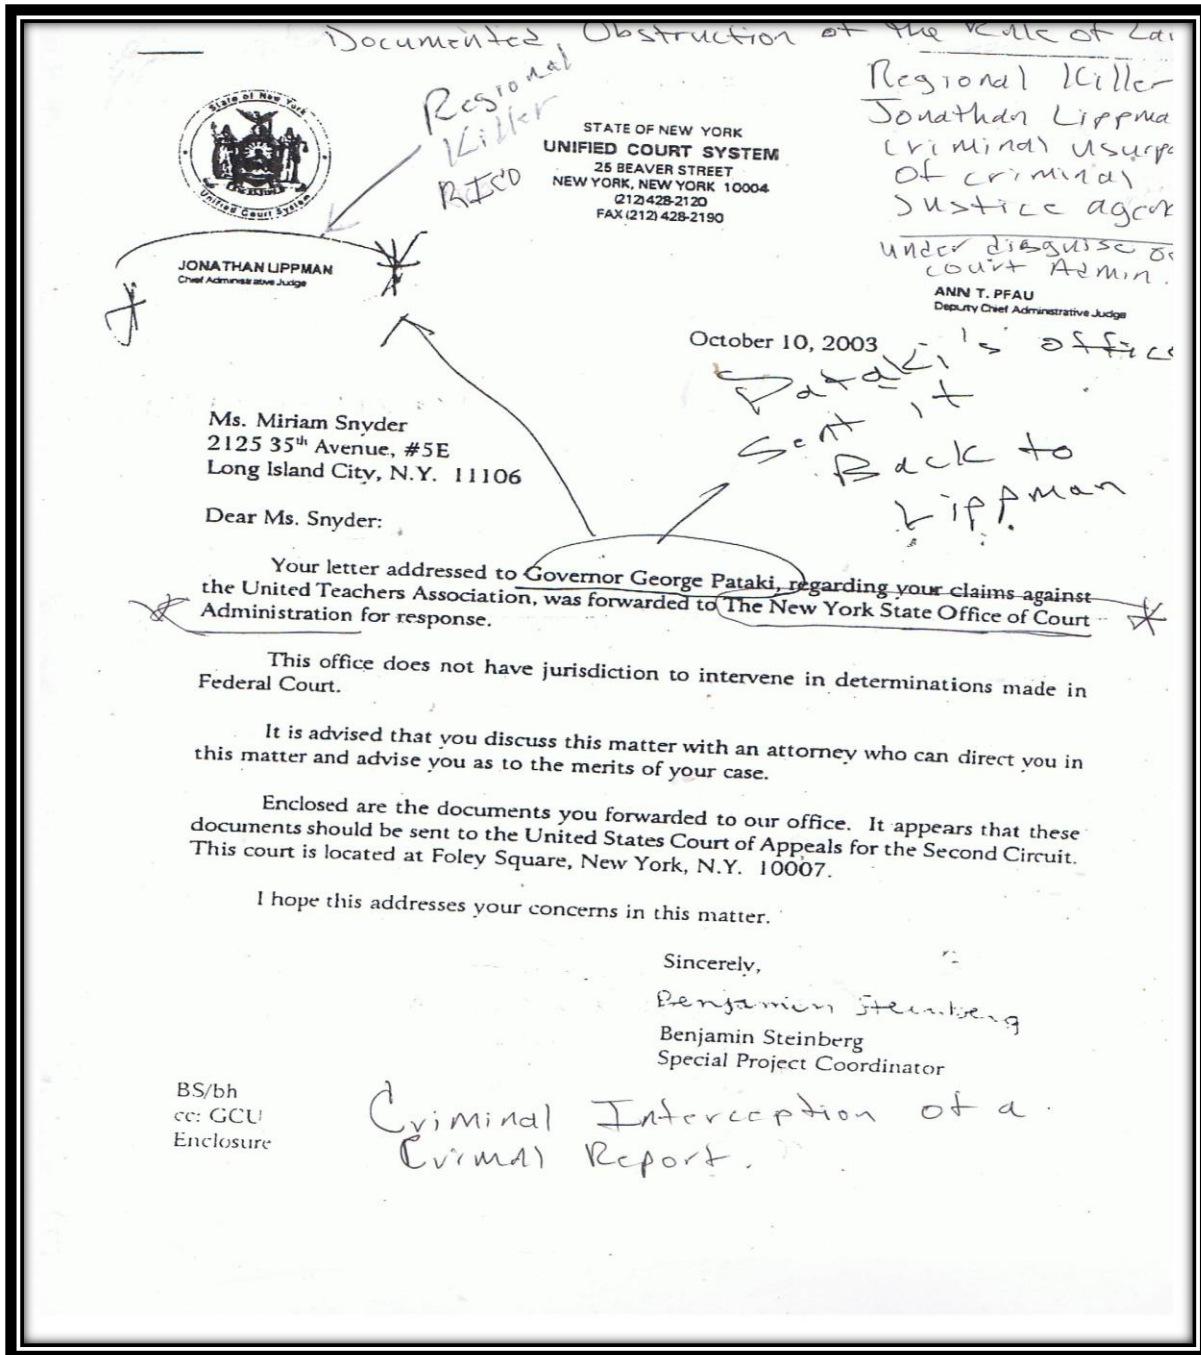 Documented, Obstruction of the Rule of Law
Regional
Killer
RICO
Regional Killer
Jonathan Lippma
Criminal usurpe
Of criminal
Justice agen
under disguise o
court Admin.
State of New York
Unified Court System
STATE OF NEW YORK
UNIFIED COURT SYSTEM
25 BEAVER STREET
NEW YORK, NEW YORK 10004
(212) 428-2120
FAX (212) 428-2190
JONATHAN LIPPMAN
Chief Administrative Judge
ANN T. PFAU
Deputy Chief Administrative Judge
October 10, 2003
Pataki's office
Sent it
Back to
Lippman
Ms. Miriam Snyder
2125 35th Avenue, #5E
Long Island City, N.Y. 11106
Dear Ms. Snyder:
Your letter addressed to Governor George Pataki, regarding your claims against
the United Teachers Association, was forwarded to The New York State Office of Court
Administration for response.
This office does not have jurisdiction to intervene in determinations made in
Federal Court.
It is advised that you discuss this matter with an attorney who can direct you in
this matter and advise you as to the merits of your case.
Enclosed are the documents you forwarded to our office. It appears that these
documents should be sent to the United States Court of Appeals for the Second Circuit.
This court is located at Foley Square, New York, N.Y. 10007.
I hope this addresses your concerns in this matter.
Sincerely,
Benjamin Steinberg
Benjamin Steinberg
Special Project Coordinator
BS/bh
cc: GCU
Enclosure
Criminal Interception of a
Crimnal Report.